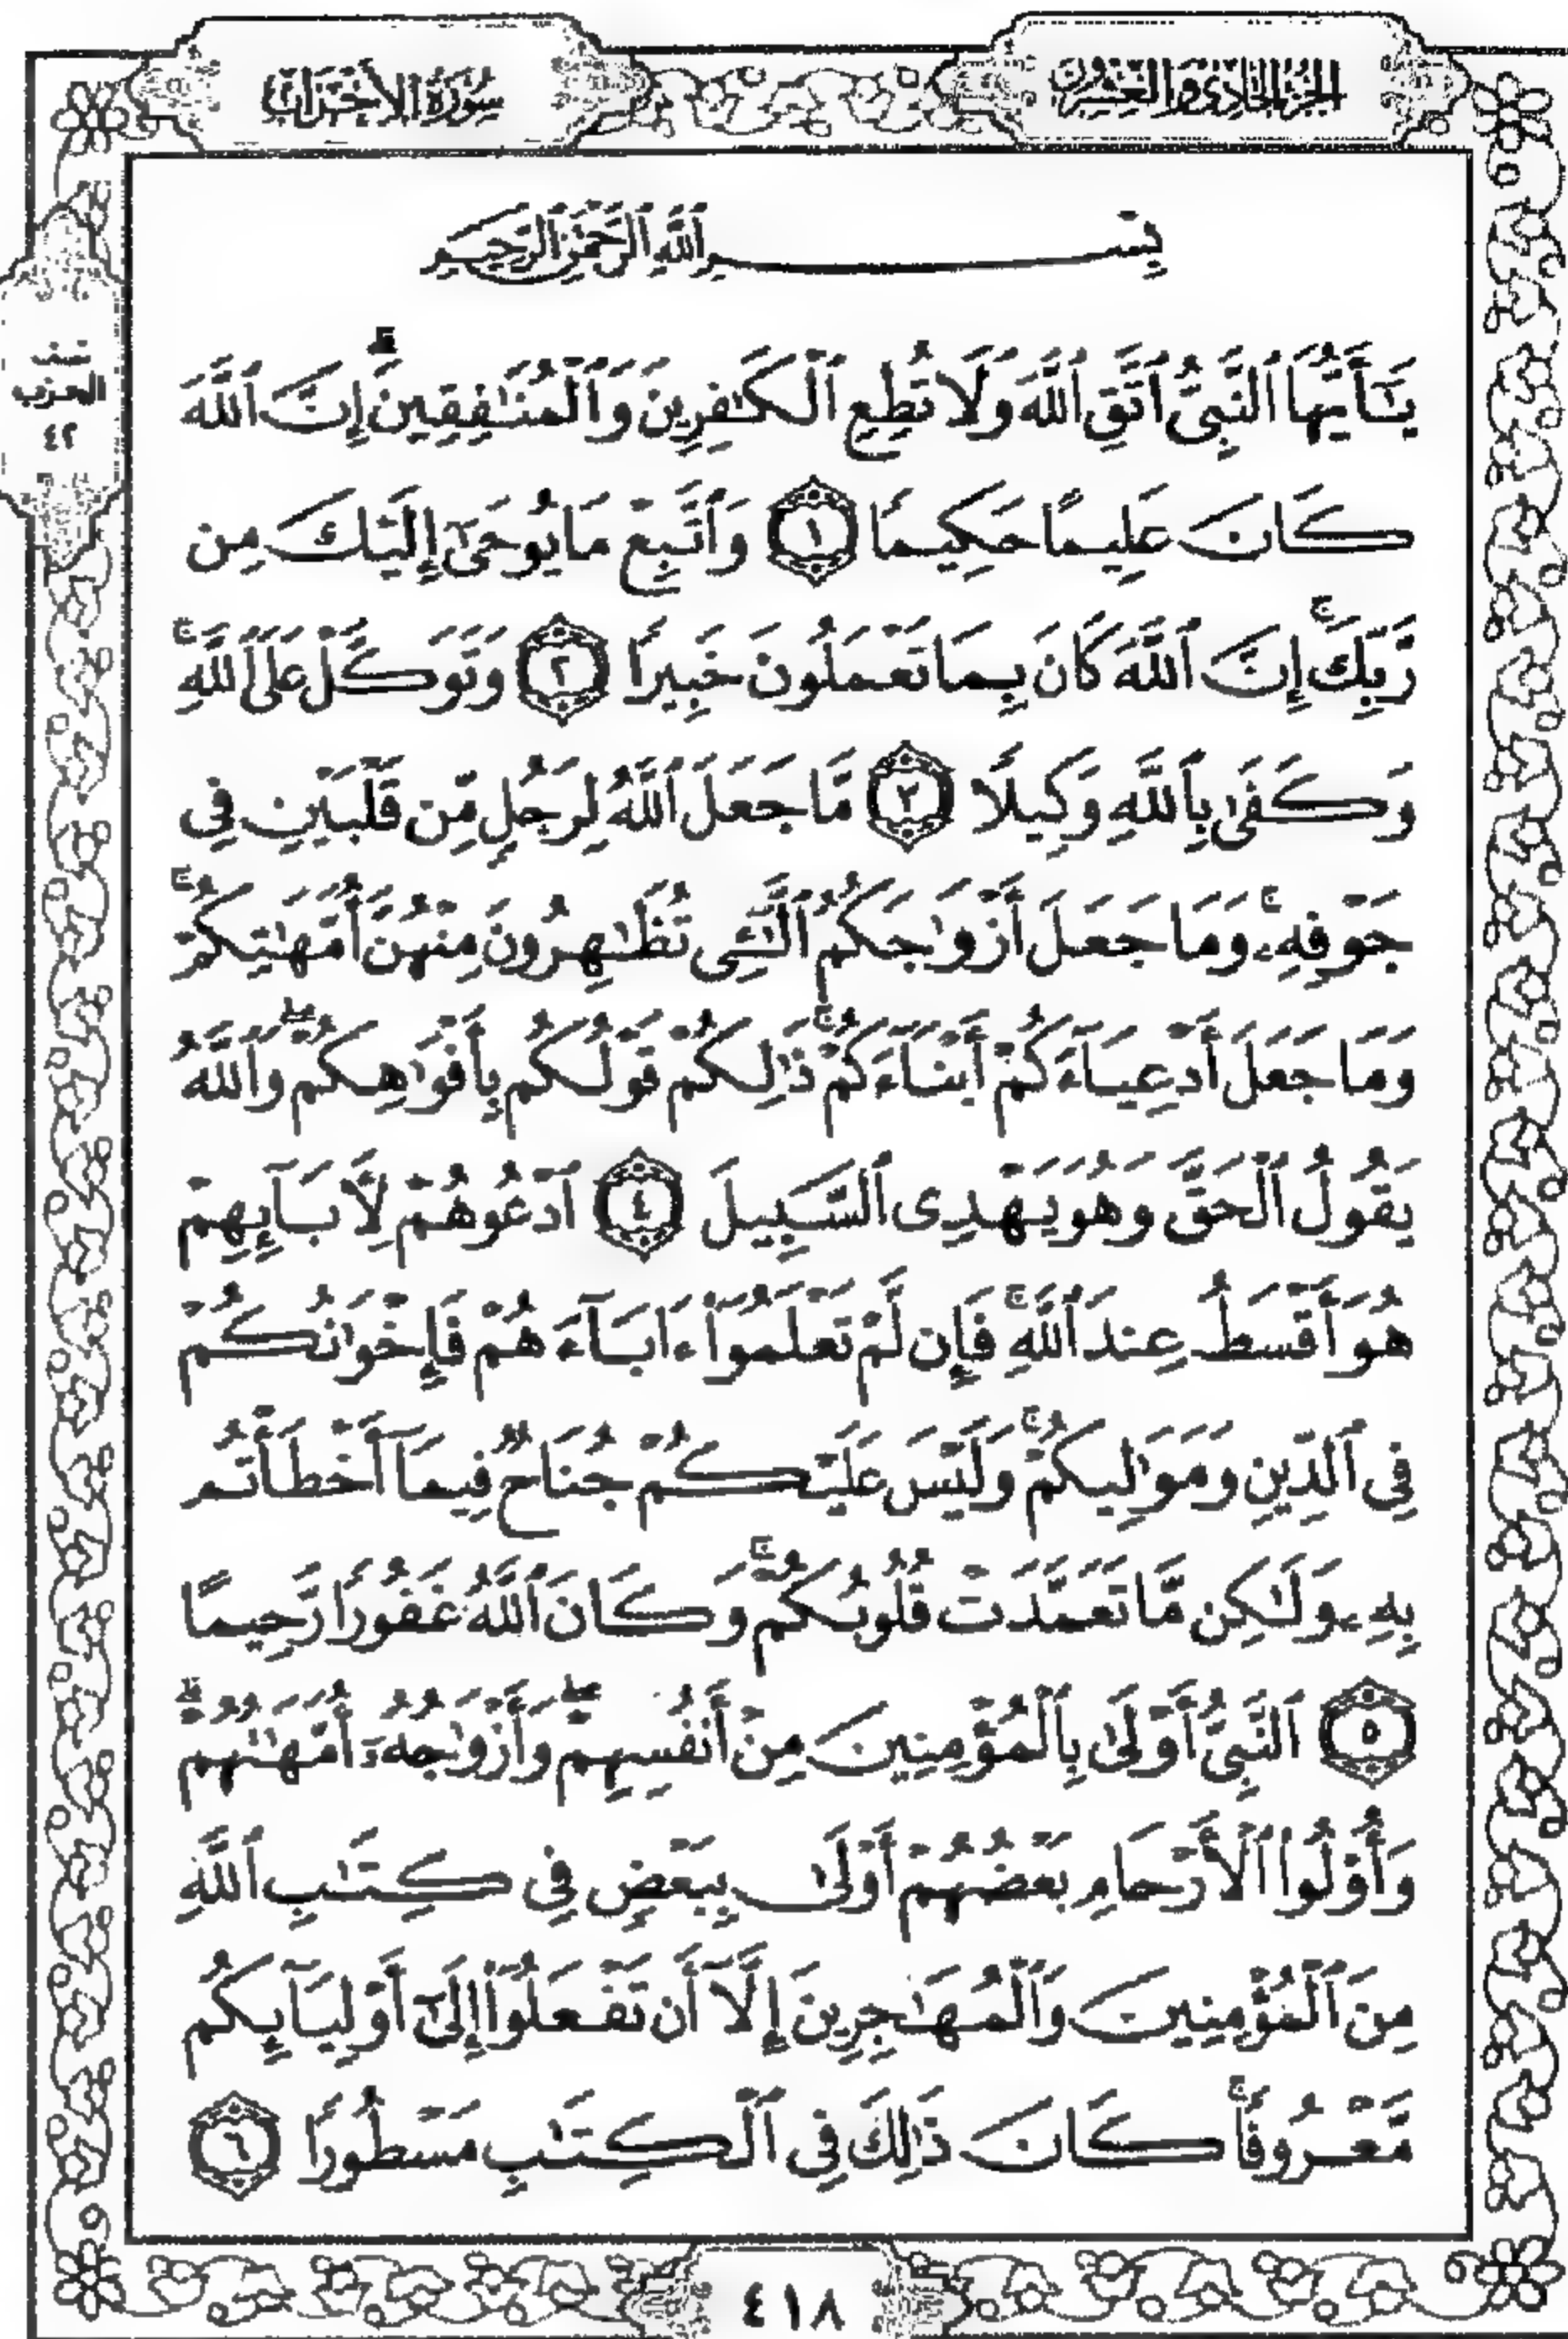 الجزء الحادي والعشرون
سورة الأحزاب
بِسْمِ ٱللَّهِ ٱلرَّحْمَٰنِ ٱلرَّحِيمِ
يَٰٓأَيُّهَا ٱلنَّبِىُّ ٱتَّقِ ٱللَّهَ وَلَا تُطِعِ ٱلْكَٰفِرِينَ وَٱلْمُنَٰفِقِينَ ۗ إِنَّ ٱللَّهَ
كَانَ عَلِيمًا حَكِيمًا ١ وَٱتَّبِعْ مَا يُوحَىٰٓ إِلَيْكَ مِن
رَّبِّكَ ۚ إِنَّ ٱللَّهَ كَانَ بِمَا تَعْمَلُونَ خَبِيرًا ٢ وَتَوَكَّلْ عَلَى ٱللَّهِ ۚ
وَكَفَىٰ بِٱللَّهِ وَكِيلًا ٣ مَّا جَعَلَ ٱللَّهُ لِرَجُلٍ مِّن قَلْبَيْنِ فِى
جَوْفِهِۦ ۚ وَمَا جَعَلَ أَزْوَٰجَكُمُ ٱلَّٰٓـِٔى تُظَٰهِرُونَ مِنْهُنَّ أُمَّهَٰتِكُمْ ۚ
وَمَا جَعَلَ أَدْعِيَآءَكُمْ أَبْنَآءَكُمْ ۚ ذَٰلِكُمْ قَوْلُكُم بِأَفْوَٰهِكُمْ ۖ وَٱللَّهُ
يَقُولُ ٱلْحَقَّ وَهُوَ يَهْدِى ٱلسَّبِيلَ ٤ ٱدْعُوهُمْ لِأَبَآئِهِمْ
هُوَ أَقْسَطُ عِندَ ٱللَّهِ ۚ فَإِن لَّمْ تَعْلَمُوٓا۟ ءَابَآءَهُمْ فَإِخْوَٰنُكُمْ
فِى ٱلدِّينِ وَمَوَٰلِيكُمْ ۚ وَلَيْسَ عَلَيْكُمْ جُنَاحٌ فِيمَآ أَخْطَأْتُم
بِهِۦ وَلَٰكِن مَّا تَعَمَّدَتْ قُلُوبُكُمْ ۚ وَكَانَ ٱللَّهُ غَفُورًا رَّحِيمًا
٥ ٱلنَّبِىُّ أَوْلَىٰ بِٱلْمُؤْمِنِينَ مِنْ أَنفُسِهِمْ ۖ وَأَزْوَٰجُهُۥٓ أُمَّهَٰتُهُمْ ۗ
وَأُو۟لُوا۟ ٱلْأَرْحَامِ بَعْضُهُمْ أَوْلَىٰ بِبَعْضٍ فِى كِتَٰبِ ٱللَّهِ
مِنَ ٱلْمُؤْمِنِينَ وَٱلْمُهَٰجِرِينَ إِلَّآ أَن تَفْعَلُوٓا۟ إِلَىٰٓ أَوْلِيَآئِكُم
مَّعْرُوفًا ۚ كَانَ ذَٰلِكَ فِى ٱلْكِتَٰبِ مَسْطُورًا ٦
نصف
الحزب
٤٢
٤١٨